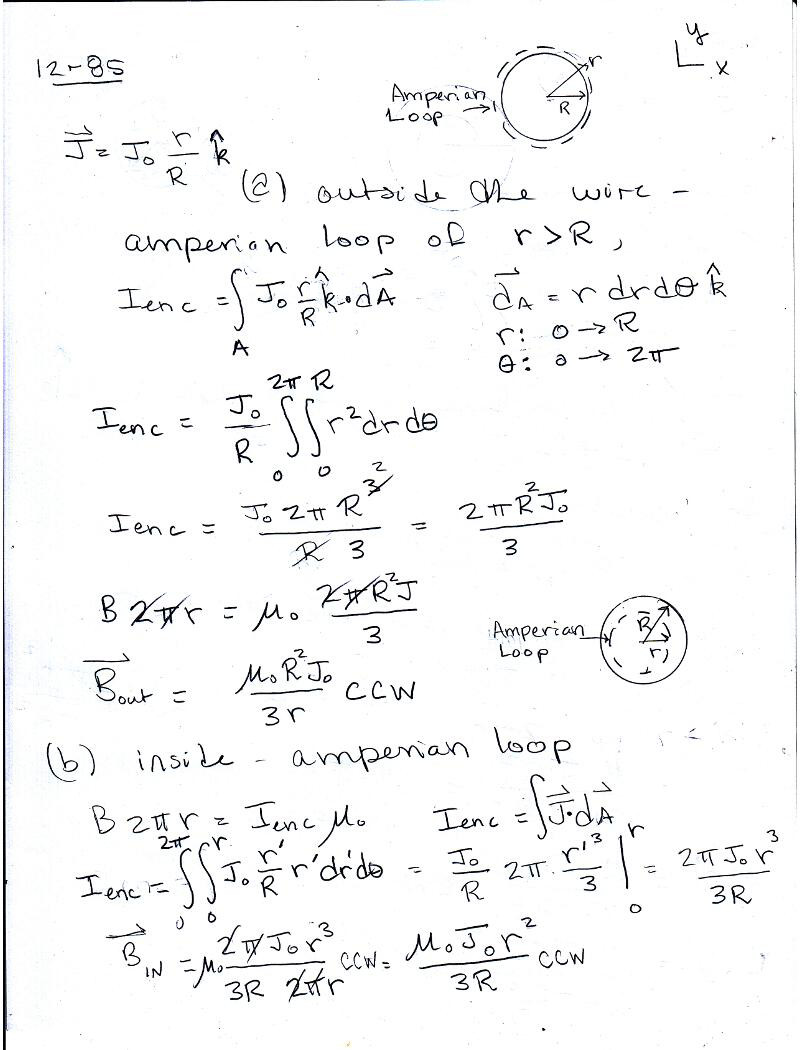 12-85
y
x
Amperian Loop
r
R
J⃗ = J₀ r/R k̂
(a) outside the wire -
amperian loop of r > R,
Ienc = ∫_A J₀ r/R k̂ • dA⃗
dA⃗ = r dr dθ k̂
r: 0 → R
θ: 0 → 2π
Ienc = J₀/R ∫₀^2π ∫₀^R r² dr dθ
Ienc = J₀ 2π R³ ² / R 3 = 2πR²J₀ / 3
B 2πr = μ₀ 2πR²J / 3
Amperian Loop
R
r
B⃗out = μ₀R²J₀ / 3r CCW
(b) inside - amperian loop
B 2πr = Ienc μ₀
Ienc = ∫ J⃗•dA⃗
Ienc = ∫₀^2π ∫₀^r J₀ r'/R r'dr'dθ = J₀/R 2π · r'³/3 |₀^r = 2πJ₀r³ / 3R
B⃗IN = μ₀ 2πJ₀r³ / 3R 2πr CCW = μ₀J₀r² / 3R CCW